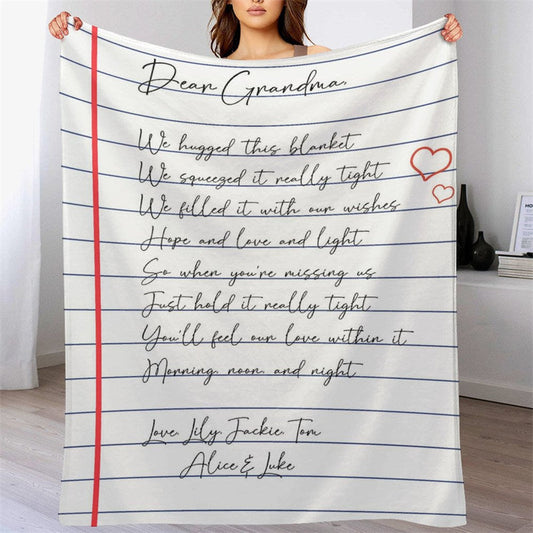 Dear Grandma,
We hugged this blanket
We squeezed it really tight
We filled it with our wishes
Hope and love and light
So when you're missing us
Just hold it really tight
You'll feel our love within it
Morning, noon, and night
Love, Lily, Jackie, Tom
Alice & Luke